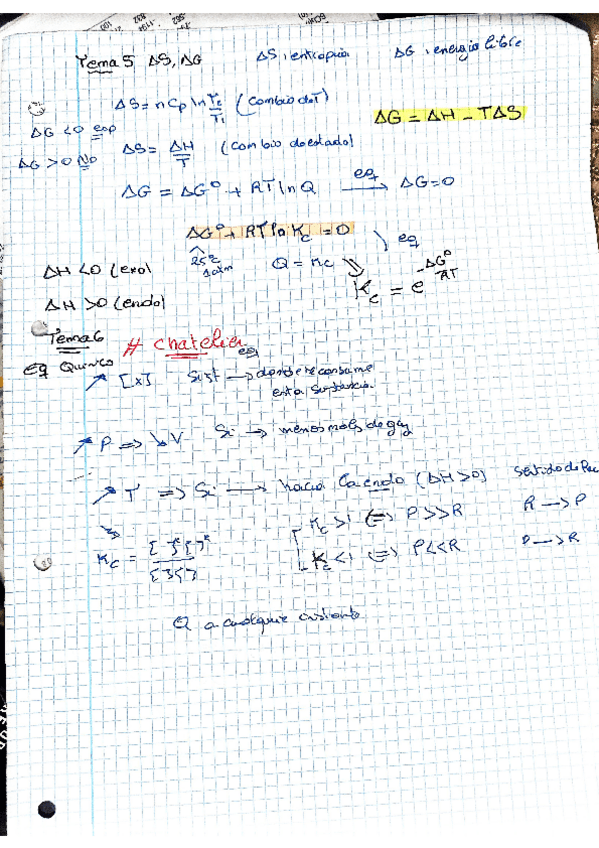 Tema 5 ΔS, ΔG ΔS: entropia ΔG: energia libre
ΔS = n Cp ln T2/T1 (Cambio de T)
ΔG = ΔH - TΔS
ΔG < 0 esp
ΔS = ΔH/T (cambio de estado)
ΔG > 0 No
ΔG = ΔG° + RT ln Q eq → ΔG = 0
ΔG° + RT ln Kc = 0 eq
25°C 1 atm Q = Kc
Kc = e^(-ΔG°/RT)
ΔH < 0 (exo)
ΔH > 0 (endo)
Tema 6 # Chatelier
Eq Quimico
↗ [x] Sist eq → donde se consume
esta sustancia.
↗ P => ↘ V Si → menos mols de gas
↗ T => Si → hacia la endo (ΔH > 0) sentido de
Kc = [ ] [ ] / [ ] [ ] Kc > 1 <=> P >> R R → P
Kc < 1 <=> P << R P → R
Q a cualquier instante